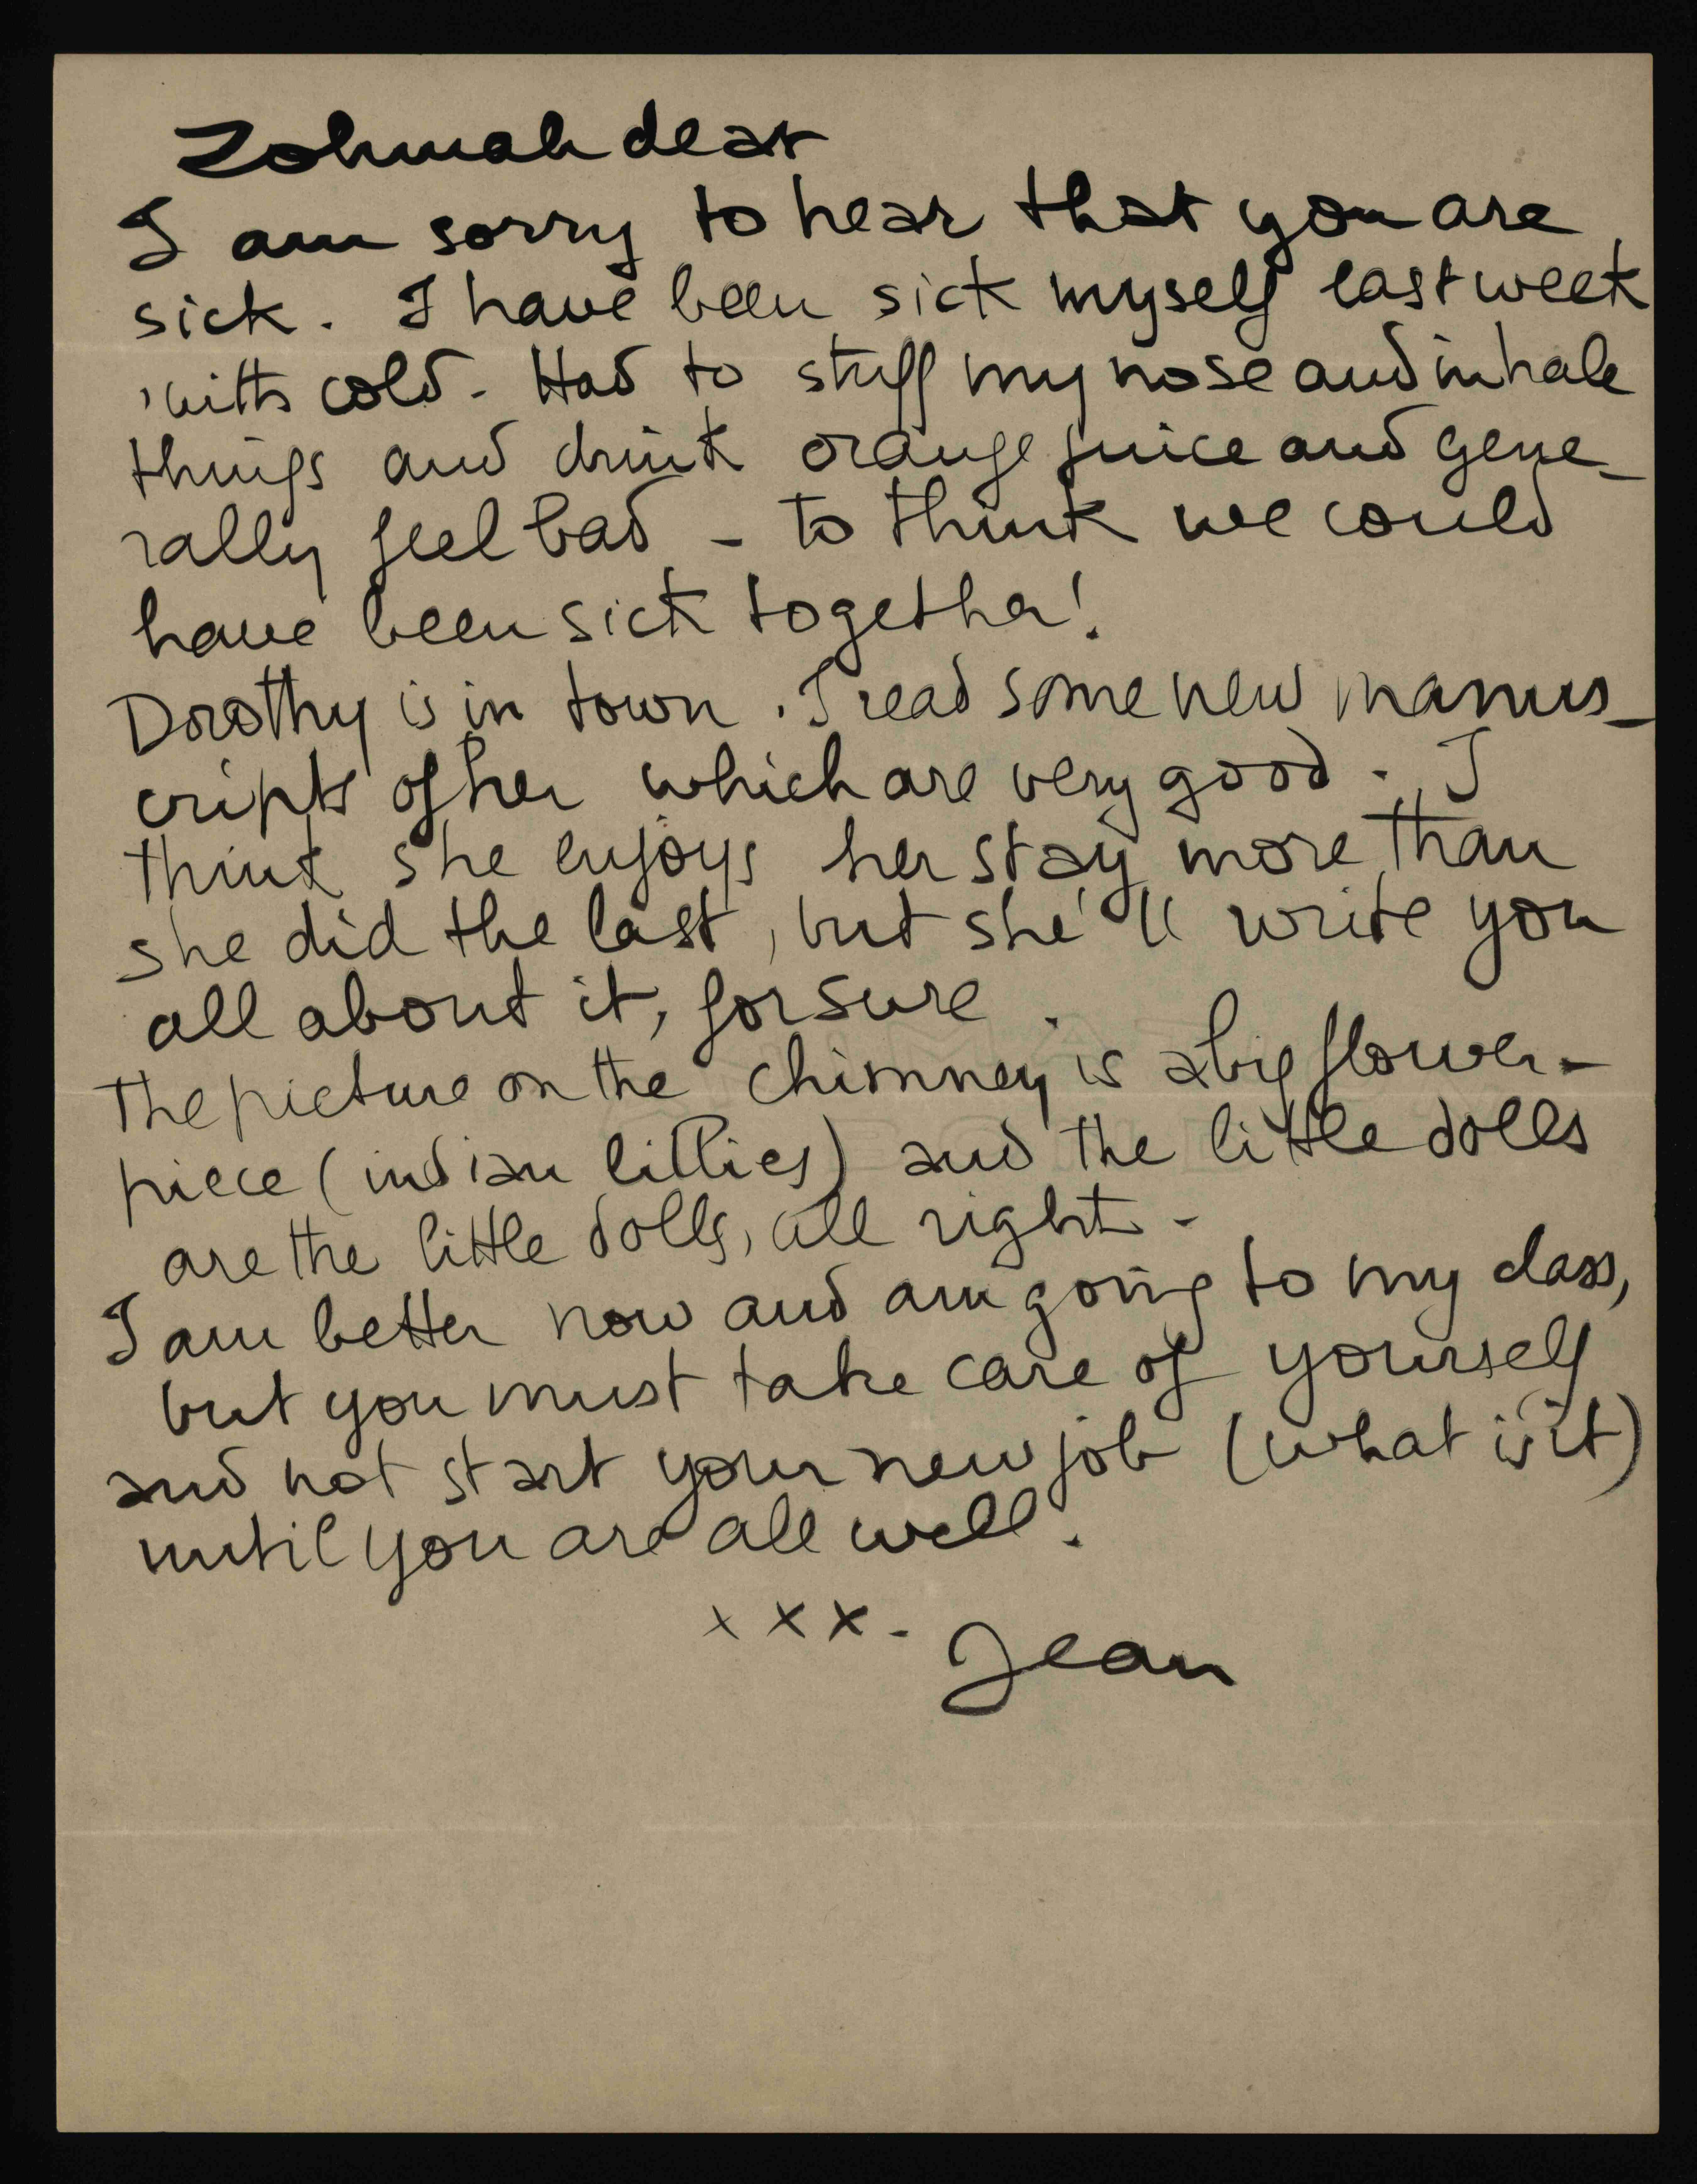 Zohmah dear
I am sorry to hear that you are
sick. I have been sick myself last week
with cold. Had to stuff my nose and inhale
things and drink orange juice and gene_
rally feel bad - to think we could
have been sick together!
Dorothy is in town. I read some new manus_
cripts of her which are very good. I
think she enjoys her stay more than
she did the last, but she'll write you
all about it, for sure.
The picture on the chimney is a big flower-
piece (indian lillies) and the little dolls
are the little dolls, all right.
I am better now and am going to my class,
but you must take care of yourself
and not start your new job (what is it)
until you are all well.
xxx - Jean